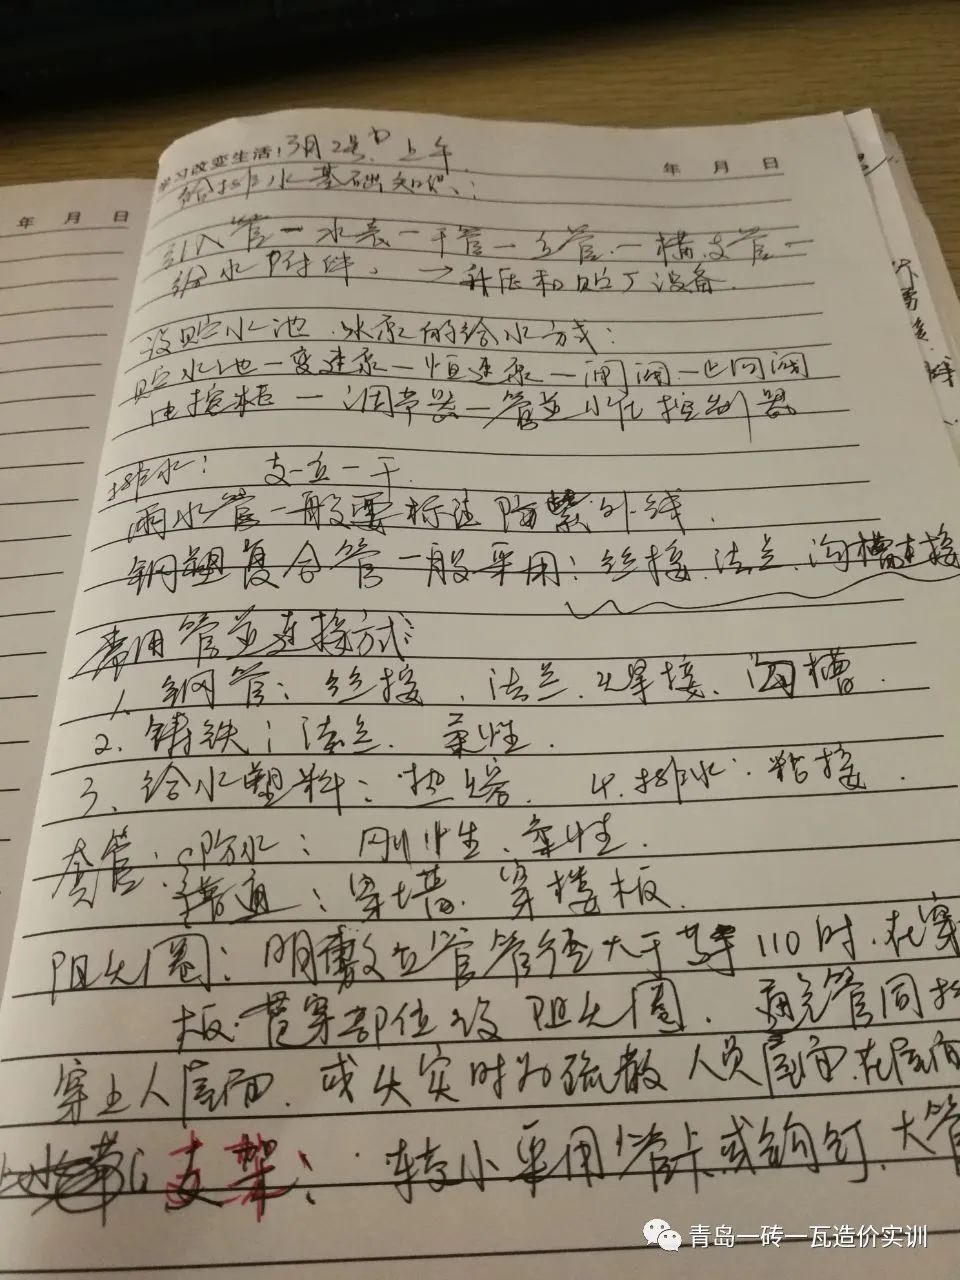 年 月 日
学习改变生活! 3月2号 上午.
年 月 日
给排水基础知识:
引入管一水表一干管一立管一横支管一
给水附件. →升压和贮水设备.
设贮水池.水泵的给水方式:
贮水池一变速泵一恒速泵一闸阀一止回阀
电控柜一调节器一管道 控制器
排水: 支一立一干.
雨水管一般要标注 外线.
钢塑复合管一般采用:丝接.法兰.沟槽连接
常用管道连接方式
1、钢管:丝接.法兰.焊接.沟槽.
2、铸铁:法兰. 柔性.
3、给水塑料:热熔. 4.排水:粘接.
套管: 防水: 刚性.柔性.
普通:穿墙.穿楼板.
阻火圈:明敷立管管径大于等于110时.在穿
板.贯穿部位设阻火圈. 通 管同
穿上人屋面.或火灾时为疏散人员屋面.在屋面
支架: 较小采用管卡或钩钉.大管
青岛一砖一瓦造价实训